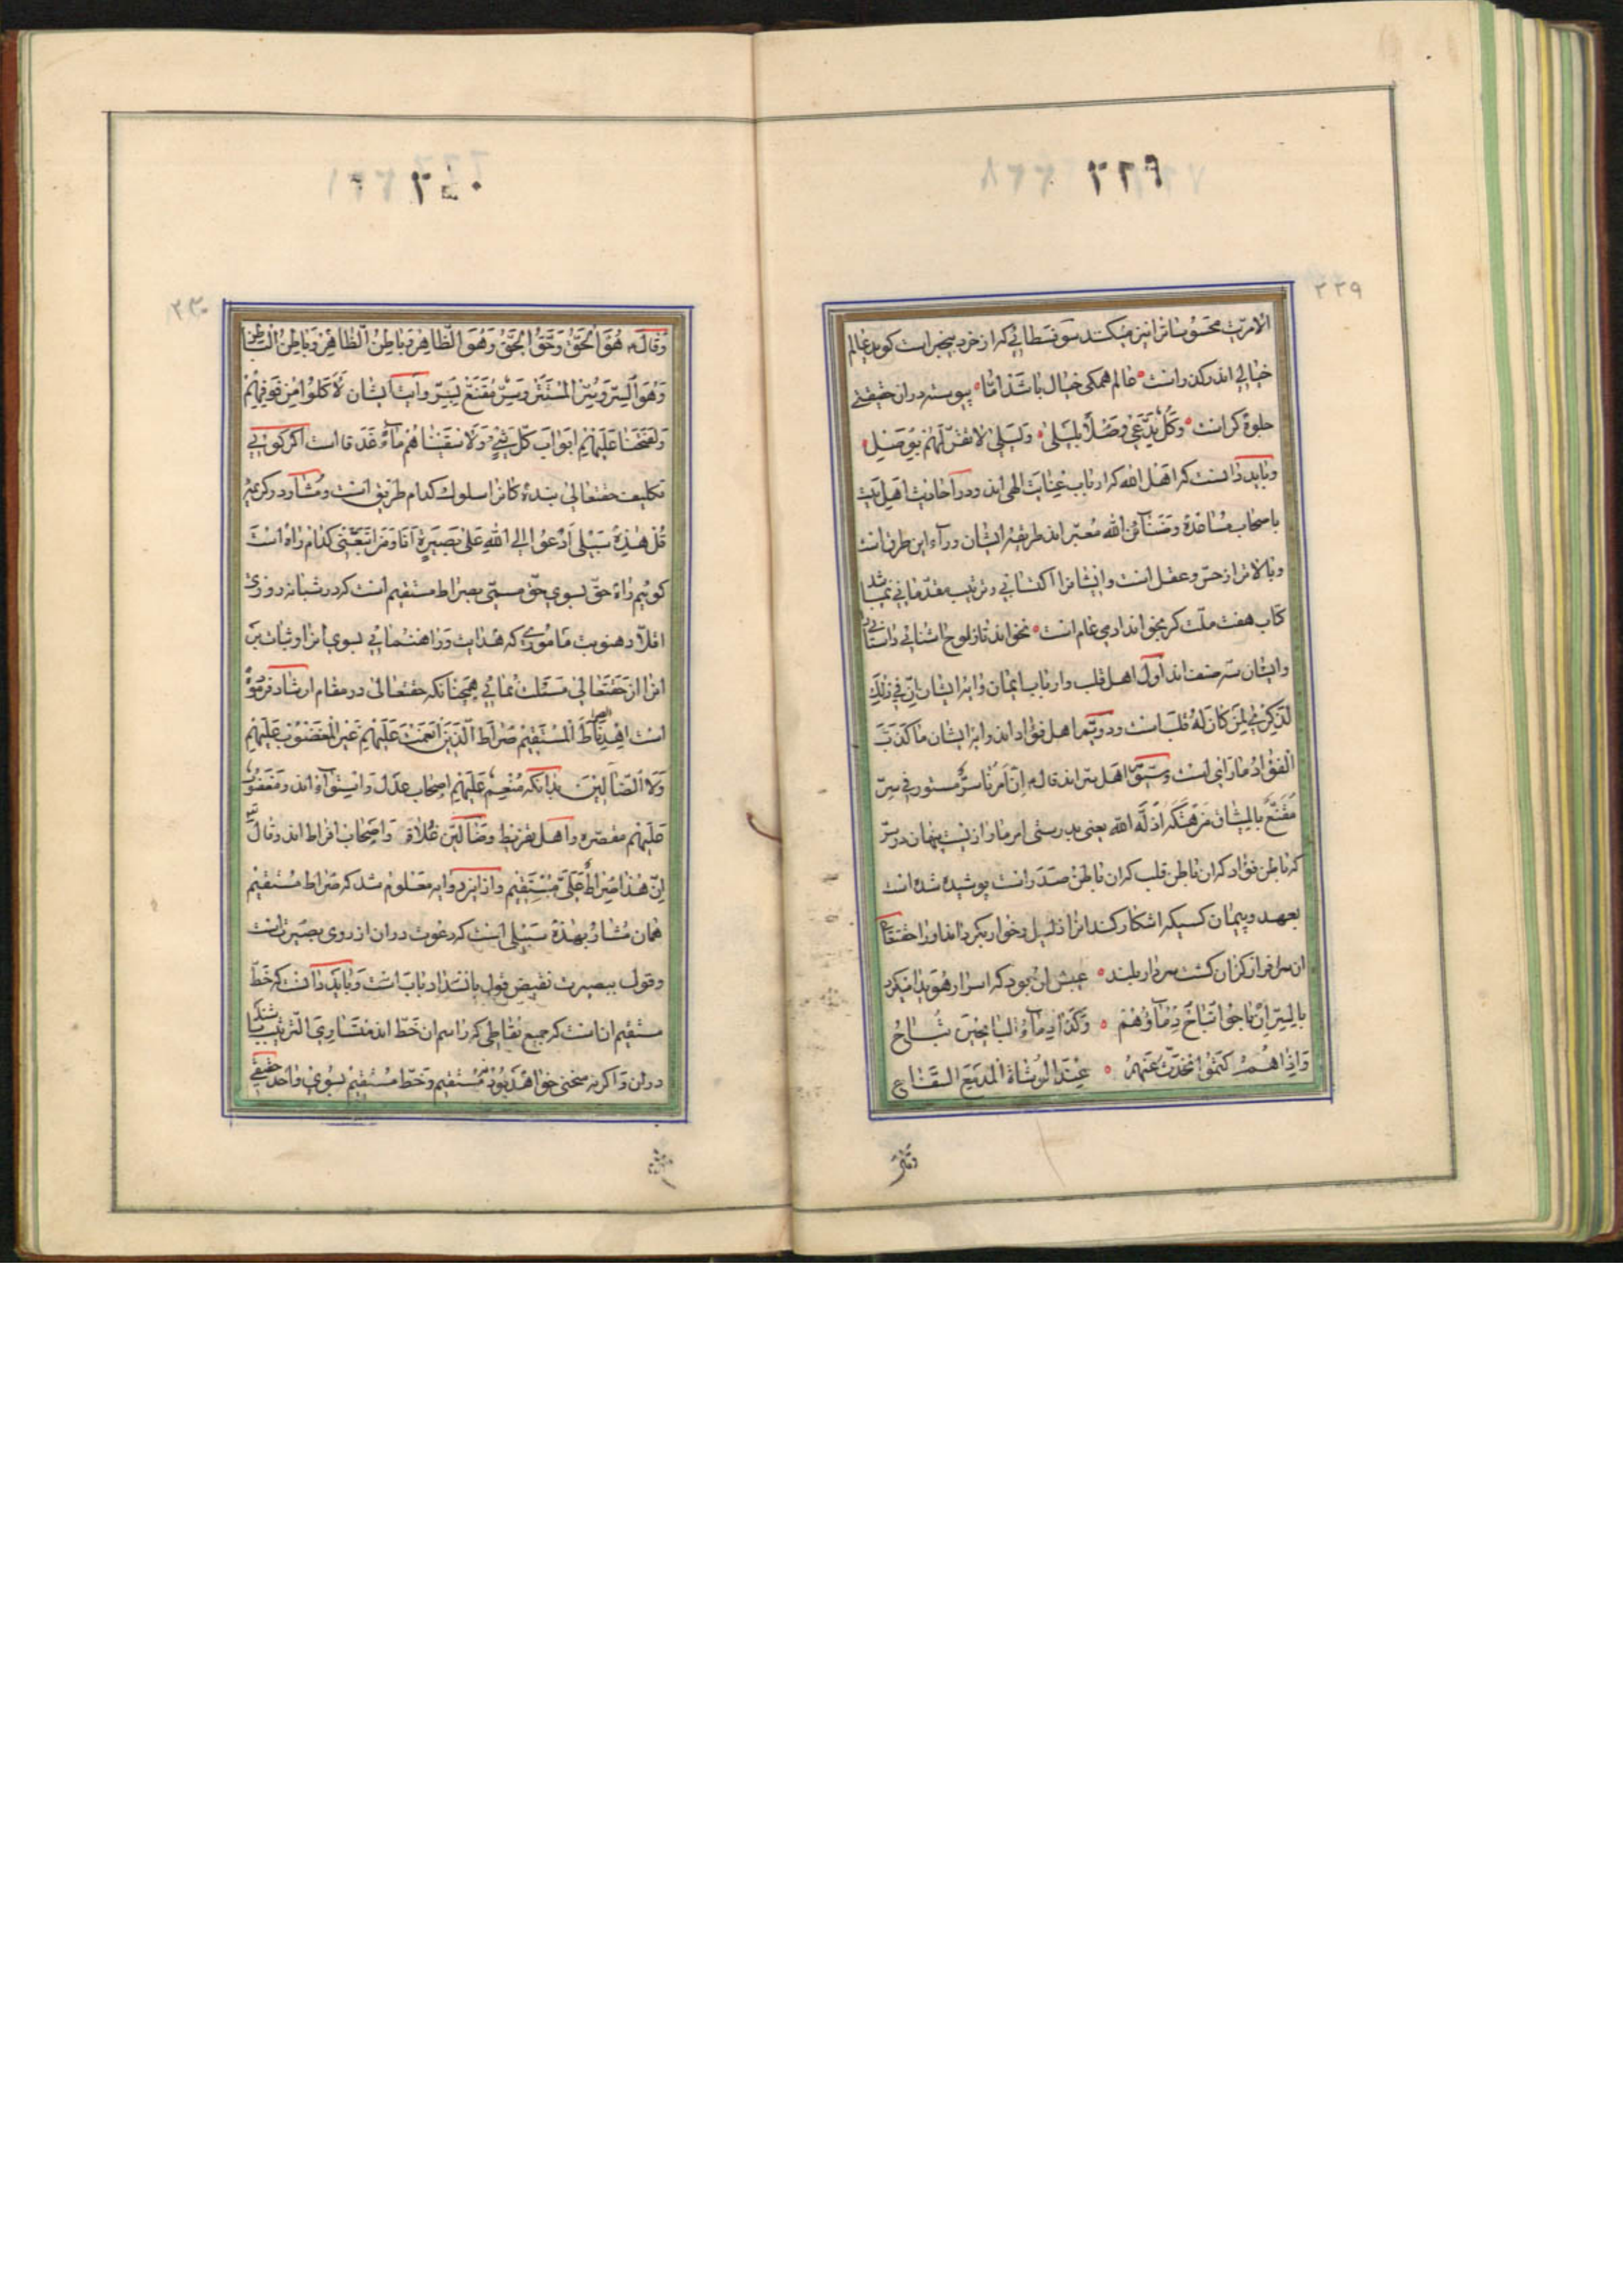 ٢٢٩
٢٢٩
الامریّت محسوسات را نیز میکند سوفسطائی که از خرد بیخبر است کوید عالم
خیالی اندر کذرانست عالم همکی خیال باشد امّا پیوسته در ان حقیقتی
جلوه کر است وَکُلٌّ یَدَّعی وَصْلاً بِلَیْلی وَلَیْلی لاتُقِرُّ لَهُمْ بِوَصْلٍ
و باید دانست که اهل الله که ارباب عنایت الهی اند و در احادیث اهل بیت
باصحاب مشاهدة و من الله معبّر اند طریقهٔ ایشان وراء این طرق است
و بالاتر از حسّ و عقل است و ایشانرا اکتسابی و ترتیب مقدّماتی نمیباشد
کتاب هفت ملّت کر بخواند ادمی عام است نخواند تا ز لوح اشنائی داستانی
و ایشان سه صنف اند اول اهل قلب و ارباب ایمان و ابرایشان اِنَّ فی ذلِکَ
لَذِکْری لِمَنْ کانَ لَهُ قَلْبٌ است و دویّم اهل فؤاد اند و ابرایشان ما کَذَبَ
الْفُؤادُ ما رَای است وسیّوّم اهل سرّ اند قال اِنَّ اَمْرَنا سِرٌّ مستور فی سِرّ
مُقَنَّعٌ بِالمیثاق مَنْ هَتَکَهُ اَذَلَّهُ الله یعنی بدرستی امر ما رازیست پنهان در سرّ
که باطن فؤاد که ان باطن قلب که ان باطن صدر است پوشیده شده است
بعهد و پیمان کسیکه اشکار کند انرا ذلیل و خوار بکرداند او را حقتعالی
ان سرافراز کزان کشت سر دار بلند عیبش ان بود که اسرار هویدا میکرد
بِالسِّرِّ اِنْ باحُوا تُباحُ دِماؤُهُمْ وَکَذا دِماءُ الْبائِحینَ تُباحُ
وَاِذا هُمْ کَتَمُوا تَحَدَّثَ عَنْهُمْ عِنْدَ الْوُشاةِ الْمَدْمَعُ السَّفّاحُ
وقال
٢٣٠
وَقالَ هُوَ الْحَقُّ وَحَقُّ الْحَقِّ وَهُوَ الظّاهِرُ وَباطِنُ الظّاهِرِ وَباطِنُ الْباطِنِ
وَهُوَ السِّرُّ وَسِرُّ الْمُسْتَتِرْ وَسِرٌّ مُقَنَّعٌ بِسِرٍّ وایت ایشان لَاَکَلُوا مِنْ فَوْقِهِمْ
وَلَفَتَحْنا عَلَیْهِمْ اَبْوابَ کُلِّ شَیْءٍ وَلَاَسْقَیْناهُمْ ماءً غَدَقاً است اکر کوئی
تکلیف حقتعالی بنده کانرا سلوک کدام طریق است و مشار در کریمهٔ
قُلْ هٰذِهِ سَبیلی اَدْعُوا اِلَی اللهِ عَلی بَصیرَةٍ اَنَا وَمَنِ اتَّبَعَنی کدام راه است
کوئیم راه حقّ بسوی حقّ مسمّی بصراط مستقیم است که در شبانه روزی
اقلّاً ده نوبت ماموری که هدایت و راهنمائی بسوی انرا و ثبات بر
انرا از حقتعالی مسئلت نمائی همچنانکه حقتعالی در مقام ارشاد فرموده
است اِهْدِنَا الصِّراطَ الْمُسْتَقیمَ صِراطَ الَّذینَ اَنْعَمْتَ عَلَیْهِمْ غَیْرِ الْمَغْضُوبِ عَلَیْهِمْ
وَلَا الضّالّینَ بدانکه مُنْعِم عَلَیْهِمْ اصحاب عدل و استواء اند و مَغْضُوبٌ
عَلَیْهِمْ مقصّره و اهل تفریط و ضالّین غلاة و اصحاب افراط اند و قال
اِنَّ هٰذا صِراطٌ عَلَیَّ مُسْتَقیمٌ و از این دو ایه معلوم شد که صراط مستقیم
همان مشار بهٰذِهِ سَبیلی است که دعوت در ان از روی بصیرتست
و قول ببصیرت نقیض قول بانسداد باب است و باید دانست که خطّ
مستقیم ان است که جمیع نقاطی که راسم ان خطّ اند متساوی الترتیب باشند
در ان و اکر نه منحنی خواهد بود نه مستقیم و خطّ مستقیم بسوی واحد حقیقی